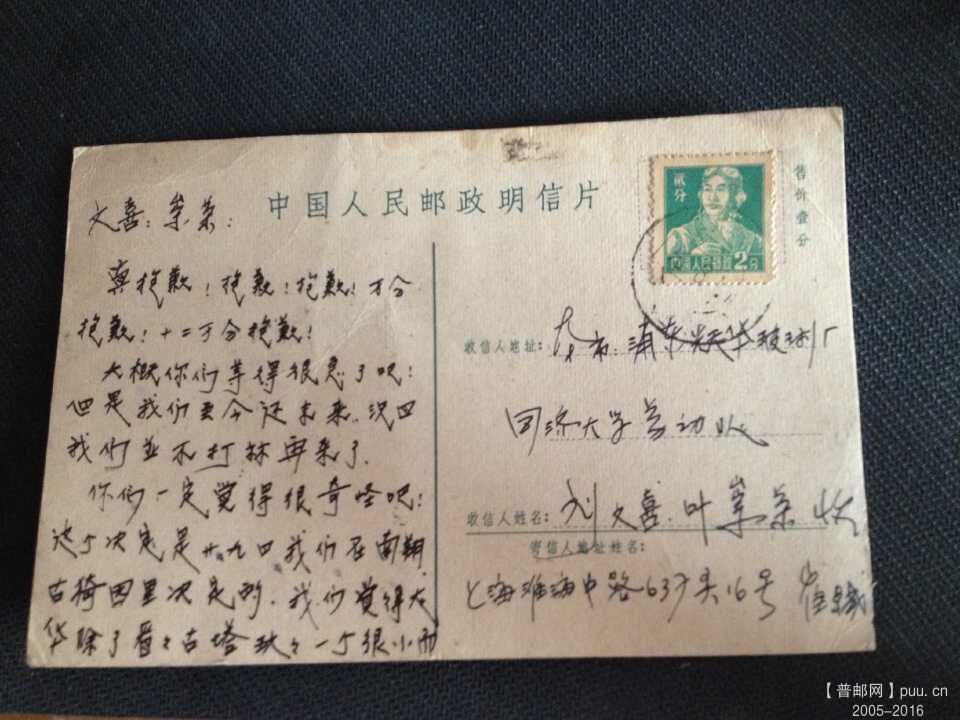 中国人民邮政明信片
售价壹分
贰分
中国人民邮政 2分
文喜：
真抱歉！抱歉！抱歉！万分
抱歉！十二万分抱歉！
大概你们等得很急了吧！
但是我们至今还未来
我们並不打祘再来了.
你们一定觉得很奇怪吧！
这个决定是廿九日我们在南翔
古猗园里决定的. 我们觉得
除了看看古塔 一个很小而
收信人地址：
本市浦东耀华玻璃厂
同济大学劳动队
收信人姓名：
刘文喜. 叶 收
寄信人地址姓名：
上海淮海中路637弄16号
【普邮网】puu.cn
2005-2016